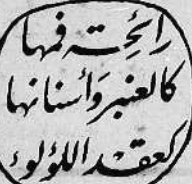 رَائِحَة فمها
كالعنبر وَأسنانها
كعقد اللؤلوء